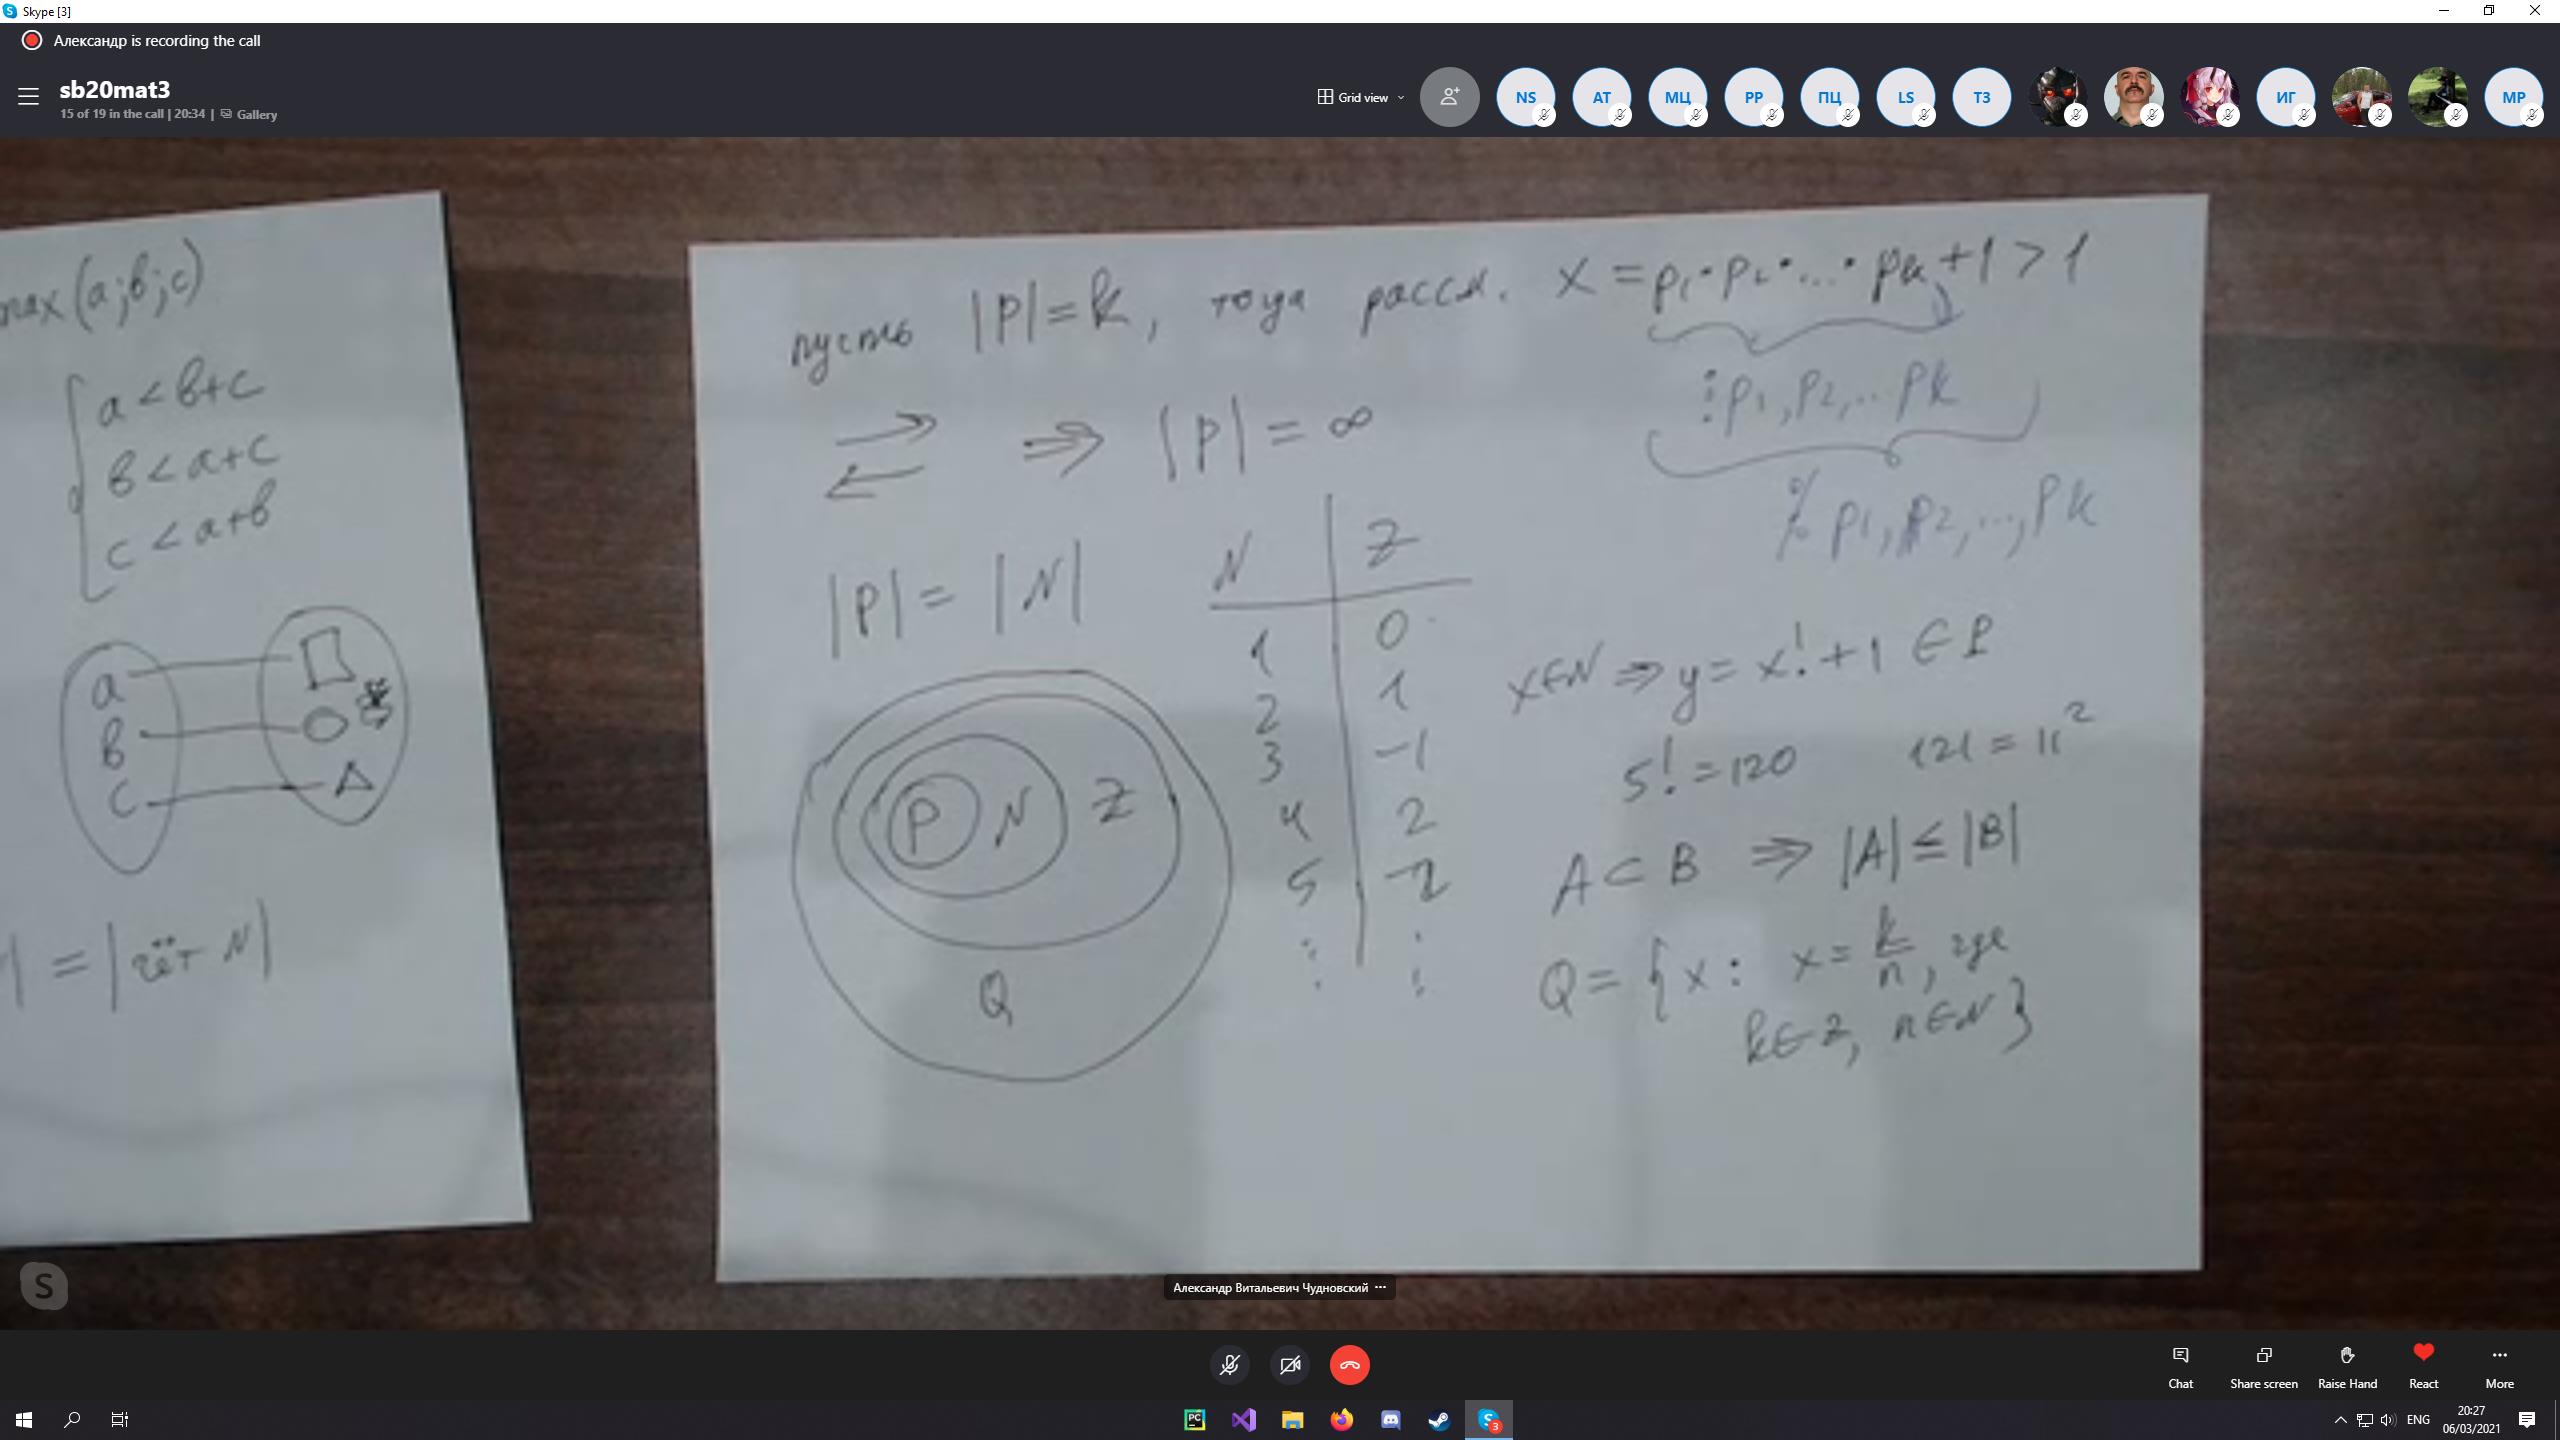 Skype [3]
Александр is recording the call
sb20mat3
15 of 19 in the call | 20:34 | Gallery
Grid view
NS
AT
МЦ
PP
ПЦ
LS
ТЗ
ИГ
MP
max(a;b;c)
a < b+c
b < a+c
c < a+b
a
b
c
| = |чёт N|
пусть |P|=k, тогда рассм. x = p₁·p₂·...·pₖ+1 > 1
⋮ p1, p2,.. pk
⇒ |P| = ∞
⋮̸ p1, p2, ..., pk
|P| = |N|
N | Z
1 | 0
2 | 1
3 | -1
4 | 2
5 | -2
⋮ | ⋮
P N Z
Q
x∈N ⇒ y = x!+1 ∈ P
5! = 120 121 = 11²
A ⊂ B ⇒ |A| ≤ |B|
Q = {x: x = k/n, где
k∈Z, n∈N}
Александр Витальевич Чудновский
Chat
Share screen
Raise Hand
React
More
ENG
20:27
06/03/2021